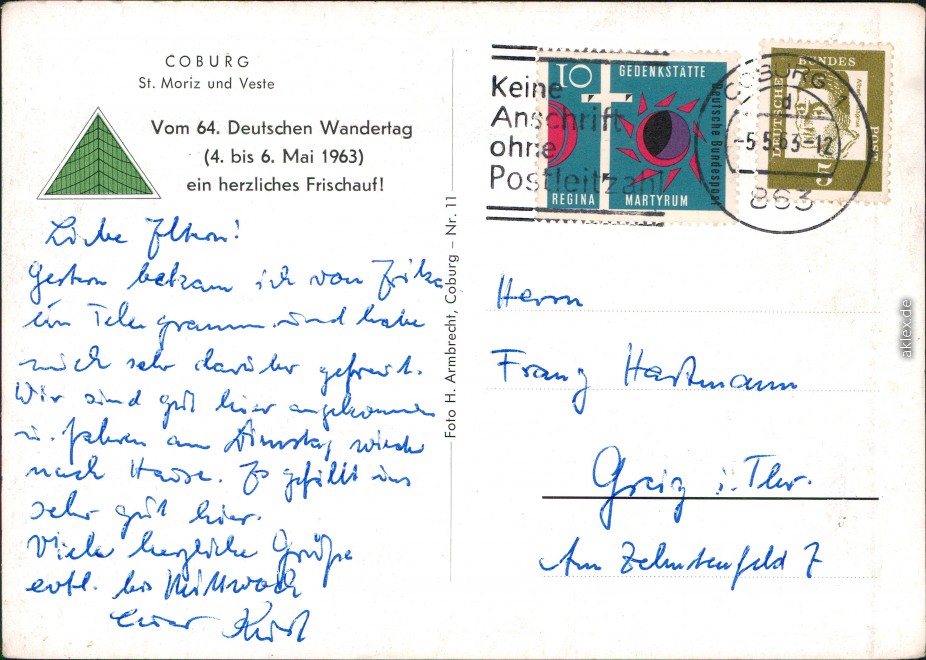 COBURG
St. Moriz und Veste
Vom 64. Deutschen Wandertag
(4. bis 6. Mai 1963)
ein herzliches Frischauf!
Liebe Eltern!
Gestern bekam ich von
ein Telegramm und habe
mich sehr darüber gefreut.
Wir sind gut hier angekommen
u. fahren am Dienstag wieder
nach Hause. Es gefällt uns
sehr gut hier.
Viele herzliche Grüße
evtl. bis Mittwoch
Euer Kurt
Foto H. Armbrecht, Coburg – Nr. 11
Keine
Anschrift
ohne
Postleitzahl
10
GEDENKSTÄTTE
REGINA MARTYRUM
Deutsche Bundespost
COBURG 1
d
-5.5.63-12
863
DEUTSCHE BUNDESPOST
15
Herrn
Franz Hartmann
Greiz i. Thür.
Am Zehntenfeld 7
aklex.de